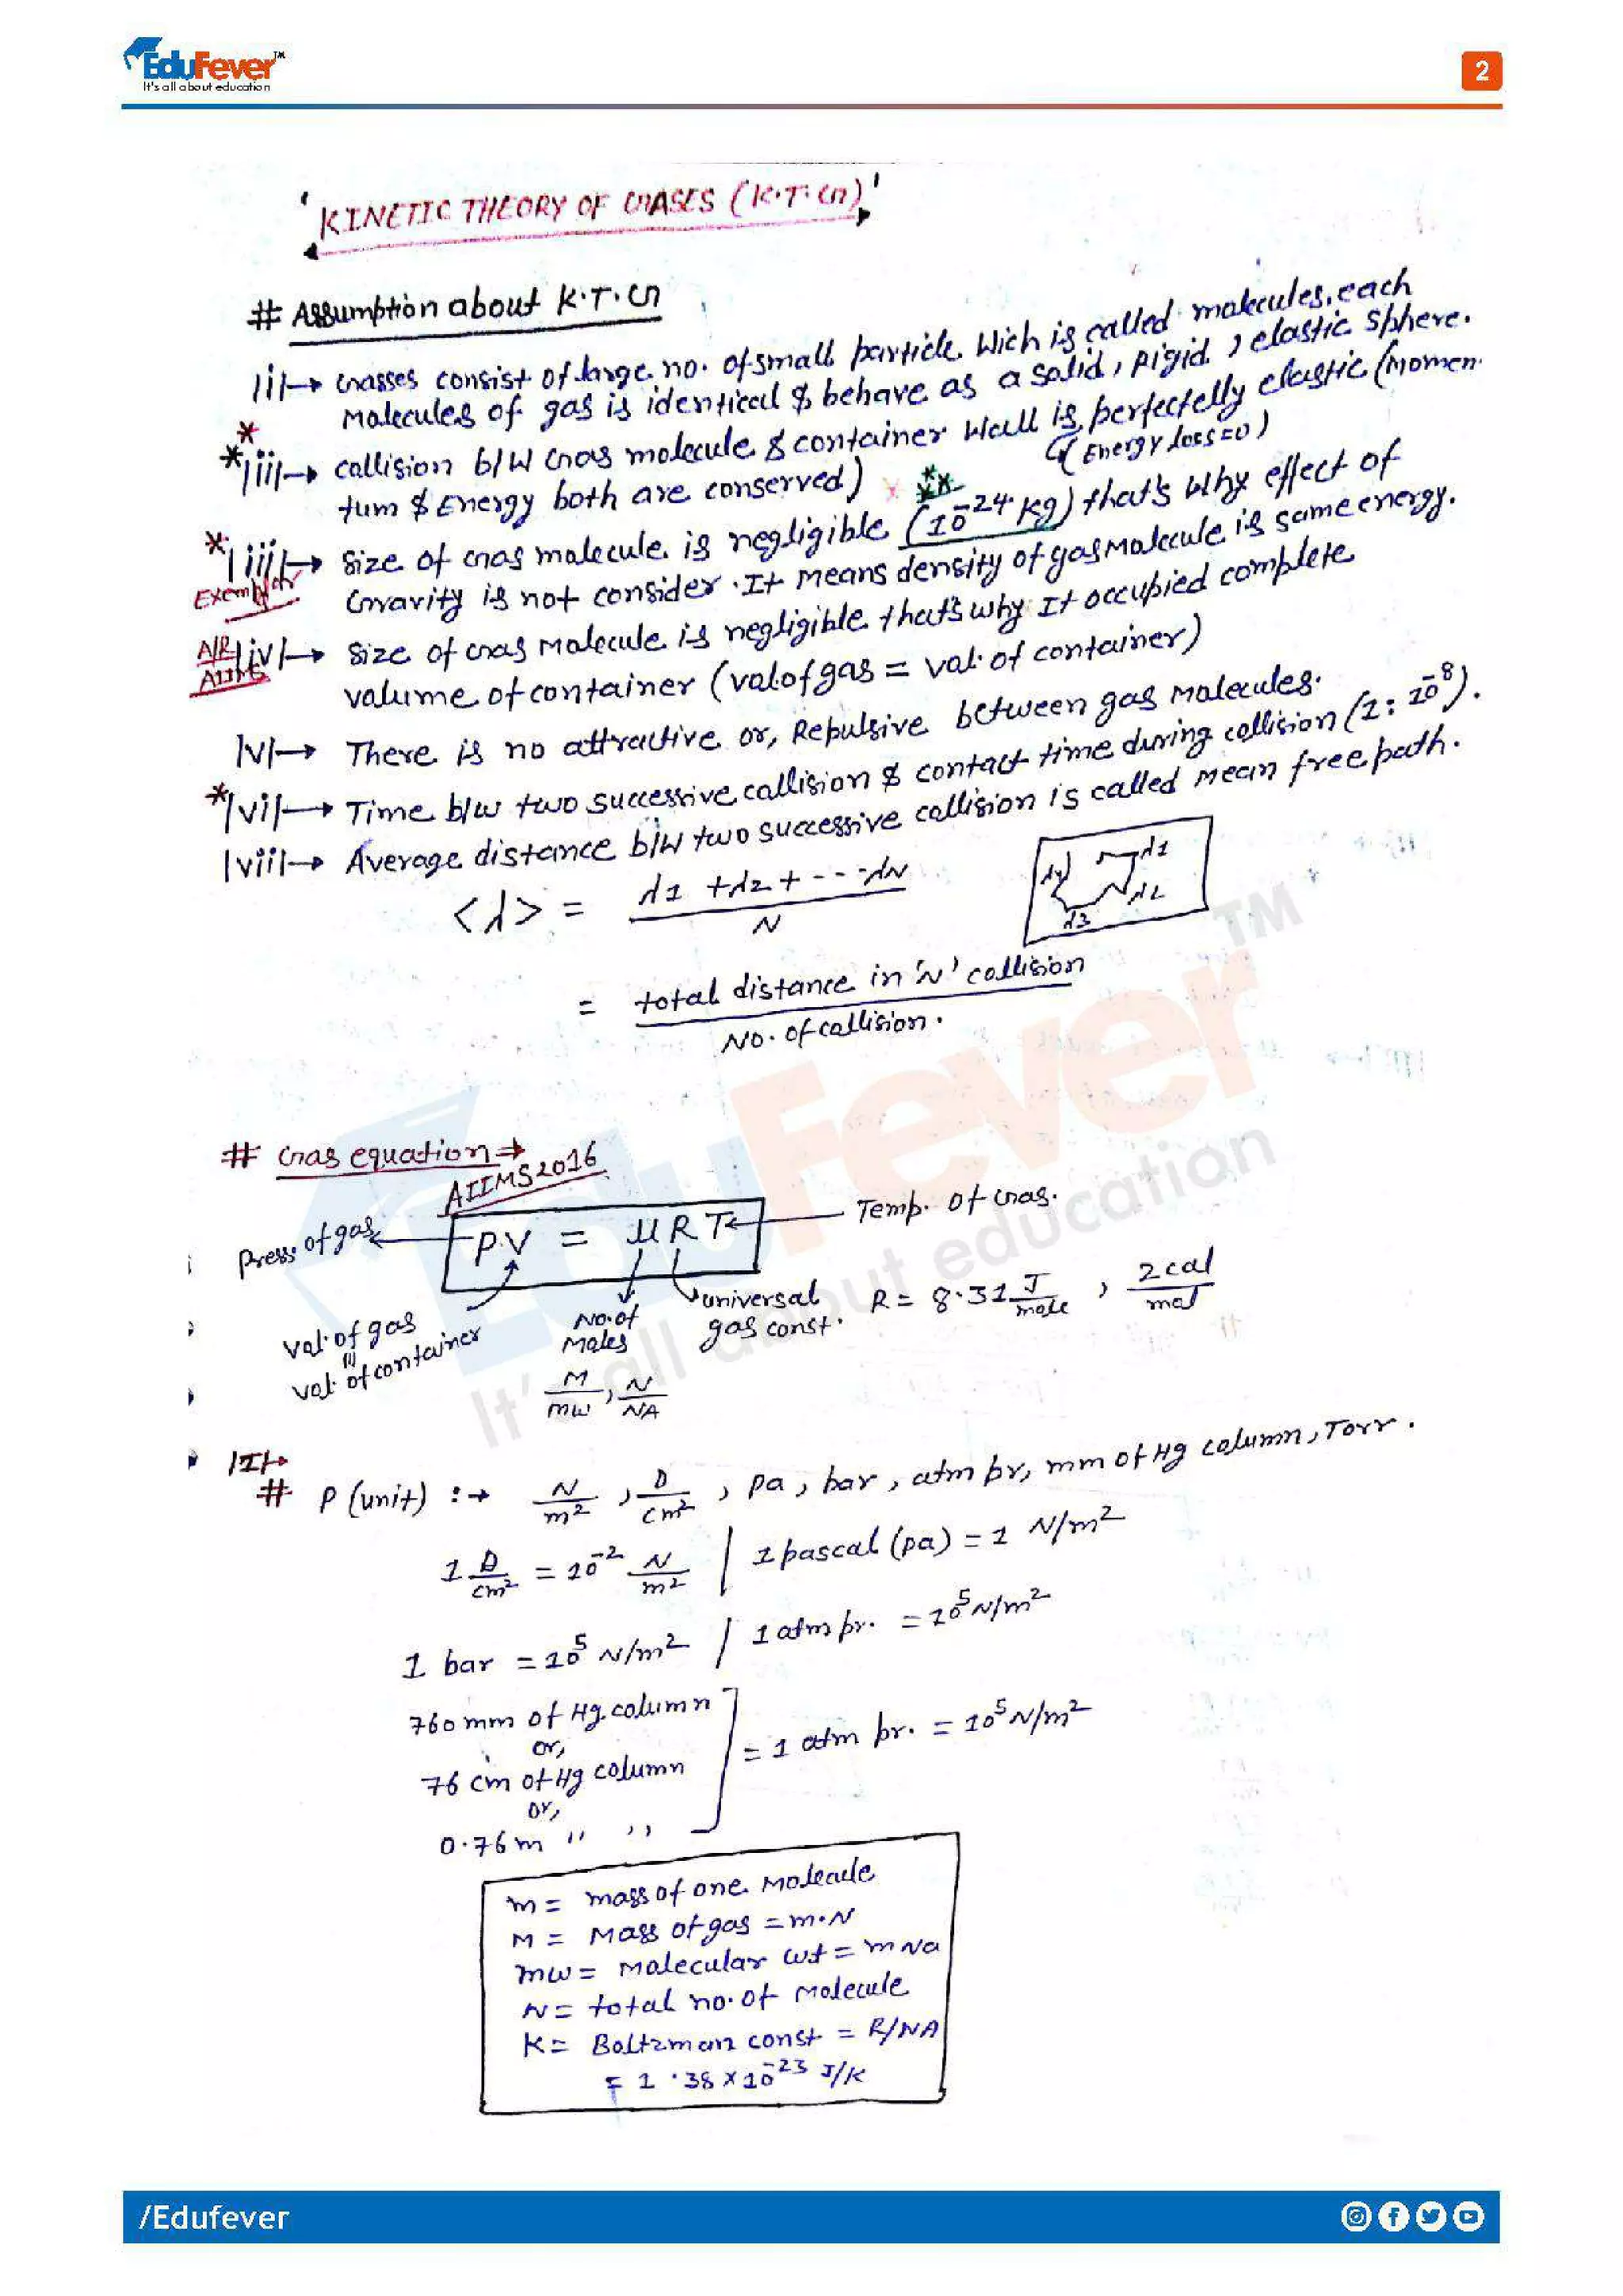 EduFever™
It's all about education
2
'KINETIC THEORY OF GASES (K.T.G)'
# Assumption about K.T.G
|i|→ Gasses consist of large no. of small particle. Wich is called molecules, each
Molecules of gas is identical & behave as a solid, Rigid, elastic sphere.
*
*|ii|→ collision b/w Gas molecule & container Wall is perfectelly elastic (Momen
tum & Energy both are conserved) (Energy loss=0)
*|iii|→ Size of Gas molecule is negligible (10^-24 kg) that's why effect of
Exemplar Gravity is not consider. It means density of gas Molecule is same energy.
AIIMS |iv|→ Size of Gas Molecule is negligible that's why It occupied complete
volume of container (vol of gas = vol. of container)
|v|→ There is no attractive or, Repulsive between gas Molecules.
*|vi|→ Time b/w two successive collision & contact time during collision (1: 10^-8).
|vii|→ Average distance b/w two successive collision is called Mean free path.
<λ> = λ1 + λ2 + ---λN / N
λ1
λ2
λ3
λ4
= total distance in 'N' collision / No. of collision.
# Gas equation→
AIIMS 2016
PV = μRT
Press. of gas
Temp. of Gas.
vol. of gas
vol. of container
No. of Moles
M/mw, N/NA
universal gas const.
R = 8.31 J/mole, 2cal/mol
|I|→
# P (unit) :→ N/m², D/cm², pa, bar, atm pr, mm of Hg column, Torr.
1 D/cm² = 10^-2 N/m² / 1 pascal (pa) = 1 N/m²
1 bar = 10^5 N/m² / 1 atm pr. = 10^5 N/m²
760 mm of Hg column
or,
76 cm of Hg column
or,
0.76m " "
= 1 atm pr. = 10^5 N/m²
m = mass of one Molecule
M = Mass of gas = m.N
mw = Molecular wt = m Na
N = total no. of Molecule
K = Boltzman const = R/NA
= 1.38 x 10^-23 J/K
EduFever™
It's all about education
/Edufever